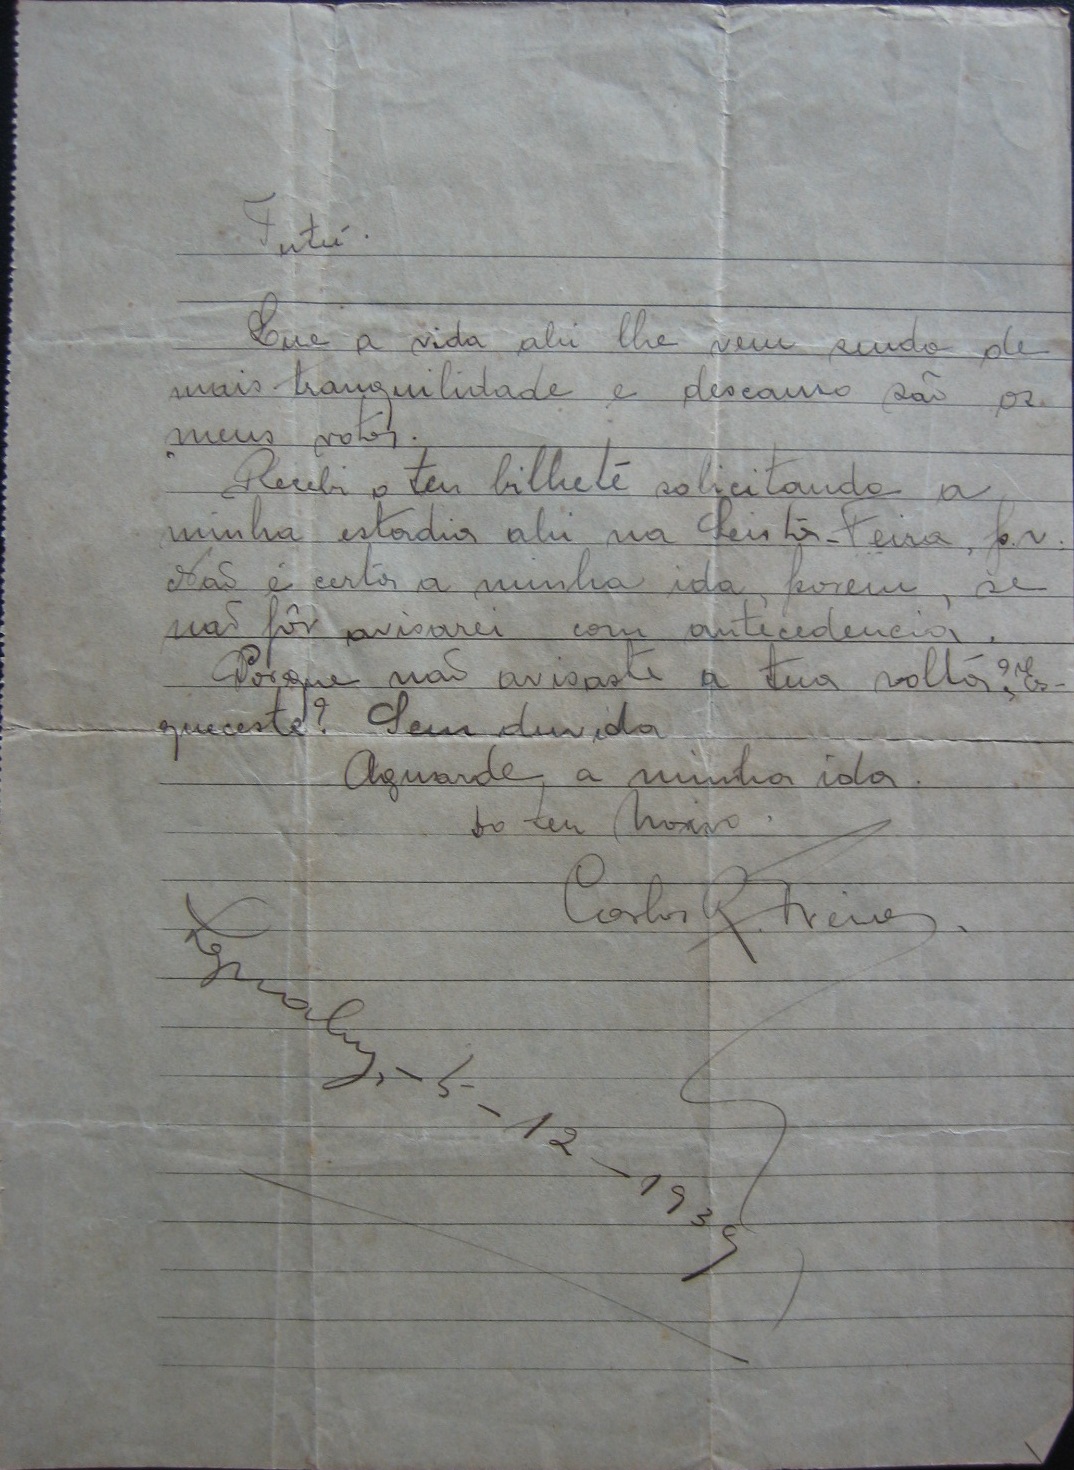 Tutú.
Que a vida ahi lhe vem sendo de
mais tranquilidade e descanso são os
meus votos.
Recebi o teu bilhete solicitando a
minha estadia ahi na Seista-Feira, p.v.
Não é certa a minha ida, porem, se
não fôr avisarei com antecedencia.
Porque não avisaste a tua volta? Es-
queceste? Sem duvida
Aguarde, a minha ida.
Do teu Noivo.
Carlos R. Freire.
5-12-1939